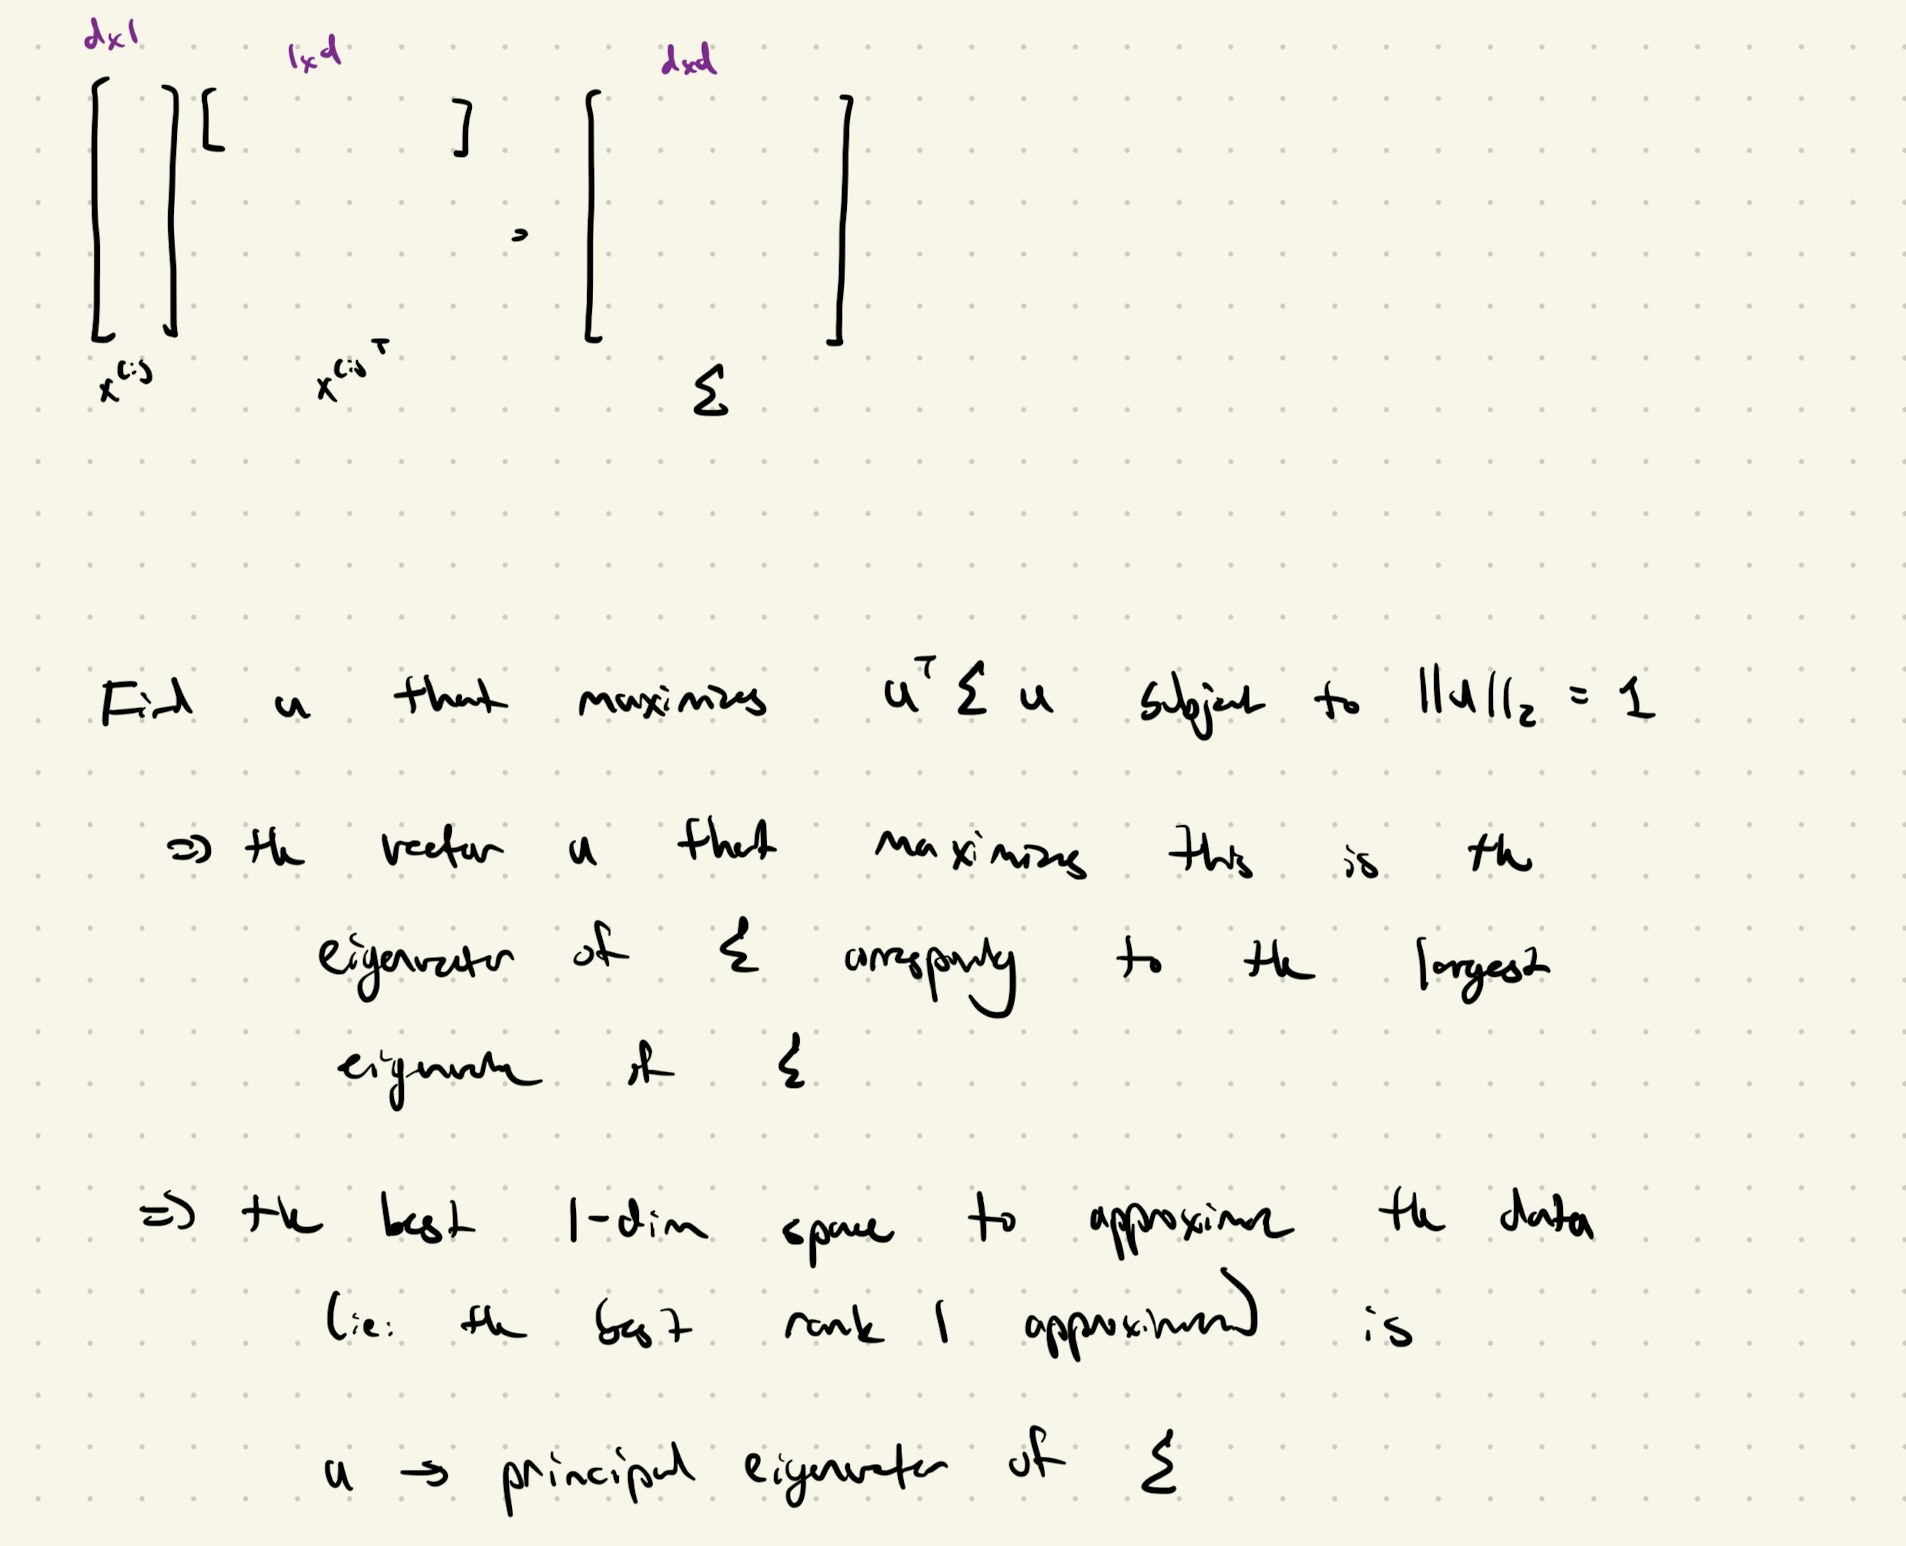 dx1 1xd dxd
[ ] [ ] = [ ]
x^(i) x^(i)^T Σ
Find u that maximizes u^T Σ u subject to ||u||_2 = 1
=> the vector u that maximizes this is the
eigenvector of Σ corresponding to the largest
eigenvalue of Σ
=> the best 1-dim space to approximate the data
(ie: the best rank 1 approximation) is
u → principal eigenvector of Σ